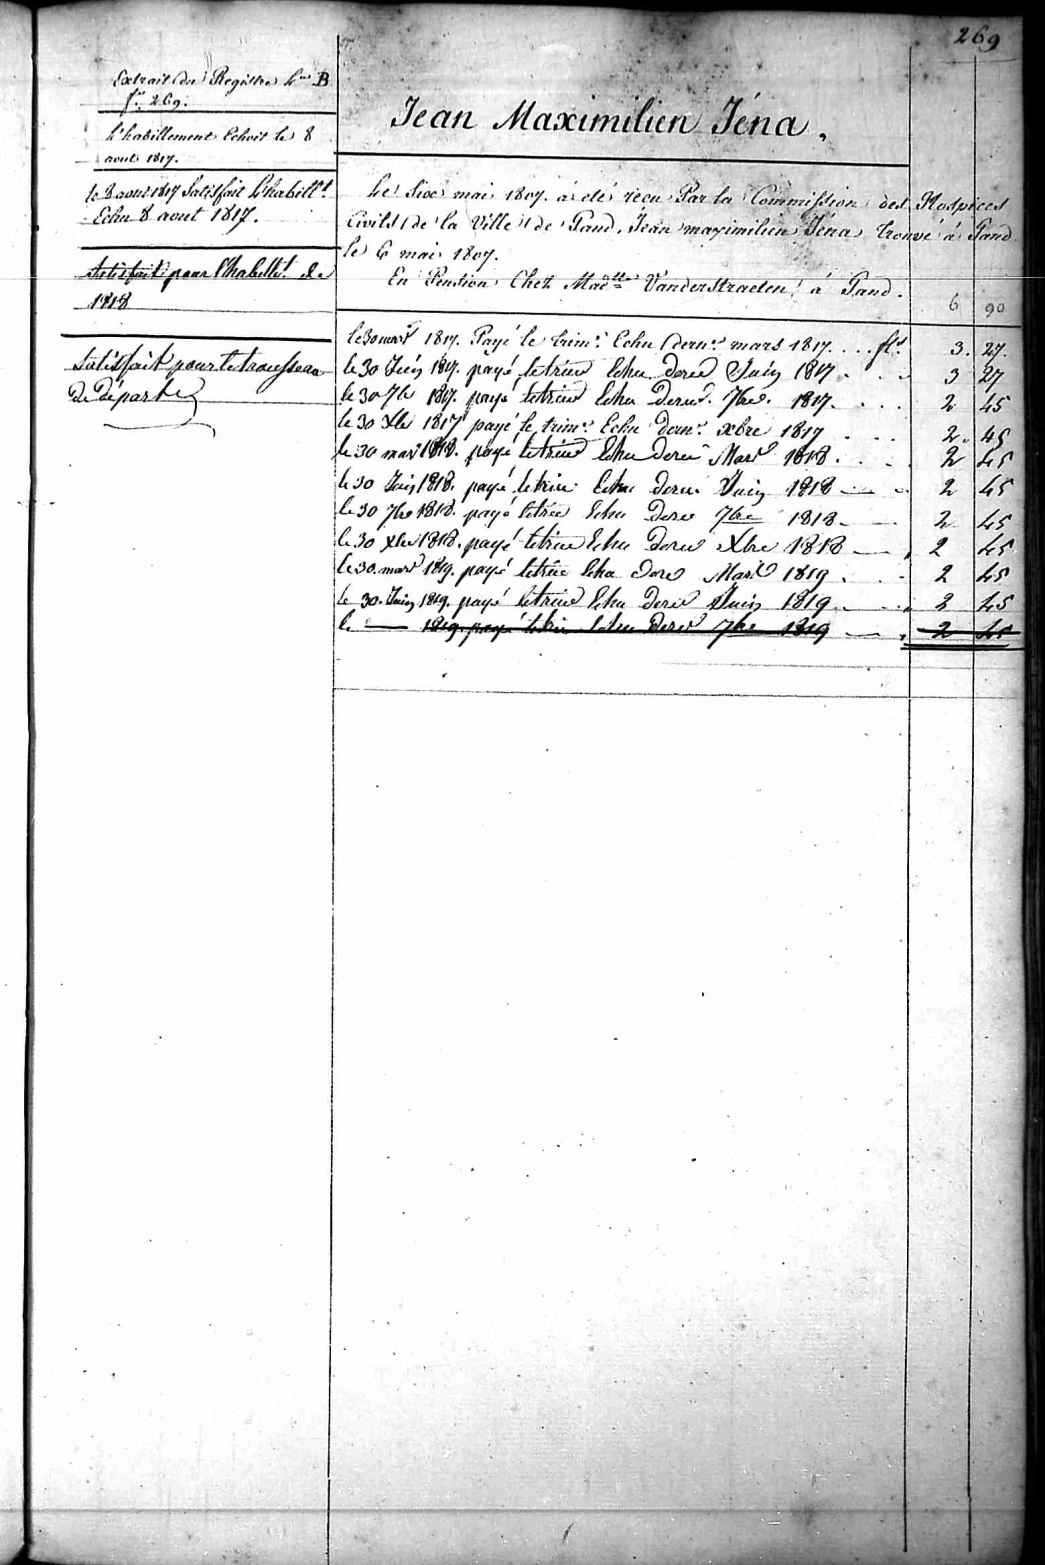 269
Extrait du Registre L.re B
f.o 269.
L'habillement Echoit le 8
aout 1817.
le 8 aout 1817 Satisfait L'habill.t
Echu 8 aout 1817.
Satisfait pour l'habillt. de
1818
Satisfait pour le trousseau
de départ
Jean Maximilien Jéna.
Le Six mai 1807. a été recu Par la Commission des Hospices
Civils de la Ville de Gand, Jean maximilien Jéna trouvé á Gand
le 6 mai 1807.
En Pension Chez Madlle Vanderstraeten á Gand.
6 90
le 30 mars 1817. Payé le trim.e Echu dern.r mars 1817. . . . fl.s 3. 27.
le 30 Juin 1817. payé le trim Echu derer Juin 1817 . . . 3 27
le 30 7bre 1817. payé le trim Echu derer. 7bre. 1817. . . . 2 45
le 30 Xbre 1817 payé le trim.e Echu dern.r xbre 1817 . . . 2. 45
le 30 mars 1818. payé le trim Echu derer Mars 1818. . . . 2 45
le 30 Juin 1818. payé le trim Echu derer Juin 1818 — - 2 45
le 30 7bre 1818. payé le trim Echu derer 7bre 1818 - — 2 45
le 30 Xbre 1818. payé le trim Echu derer Xbre 1818 — 2 45
le 30. mars 1819. payé le trim Echu derer Mars 1819 . . - 2 45
le 30. Juin 1819. payé le trim Echu derer Juin 1819. - — 2 45
le — 1819. payé le trim Echu derer 7bre 1819 — - 2 45